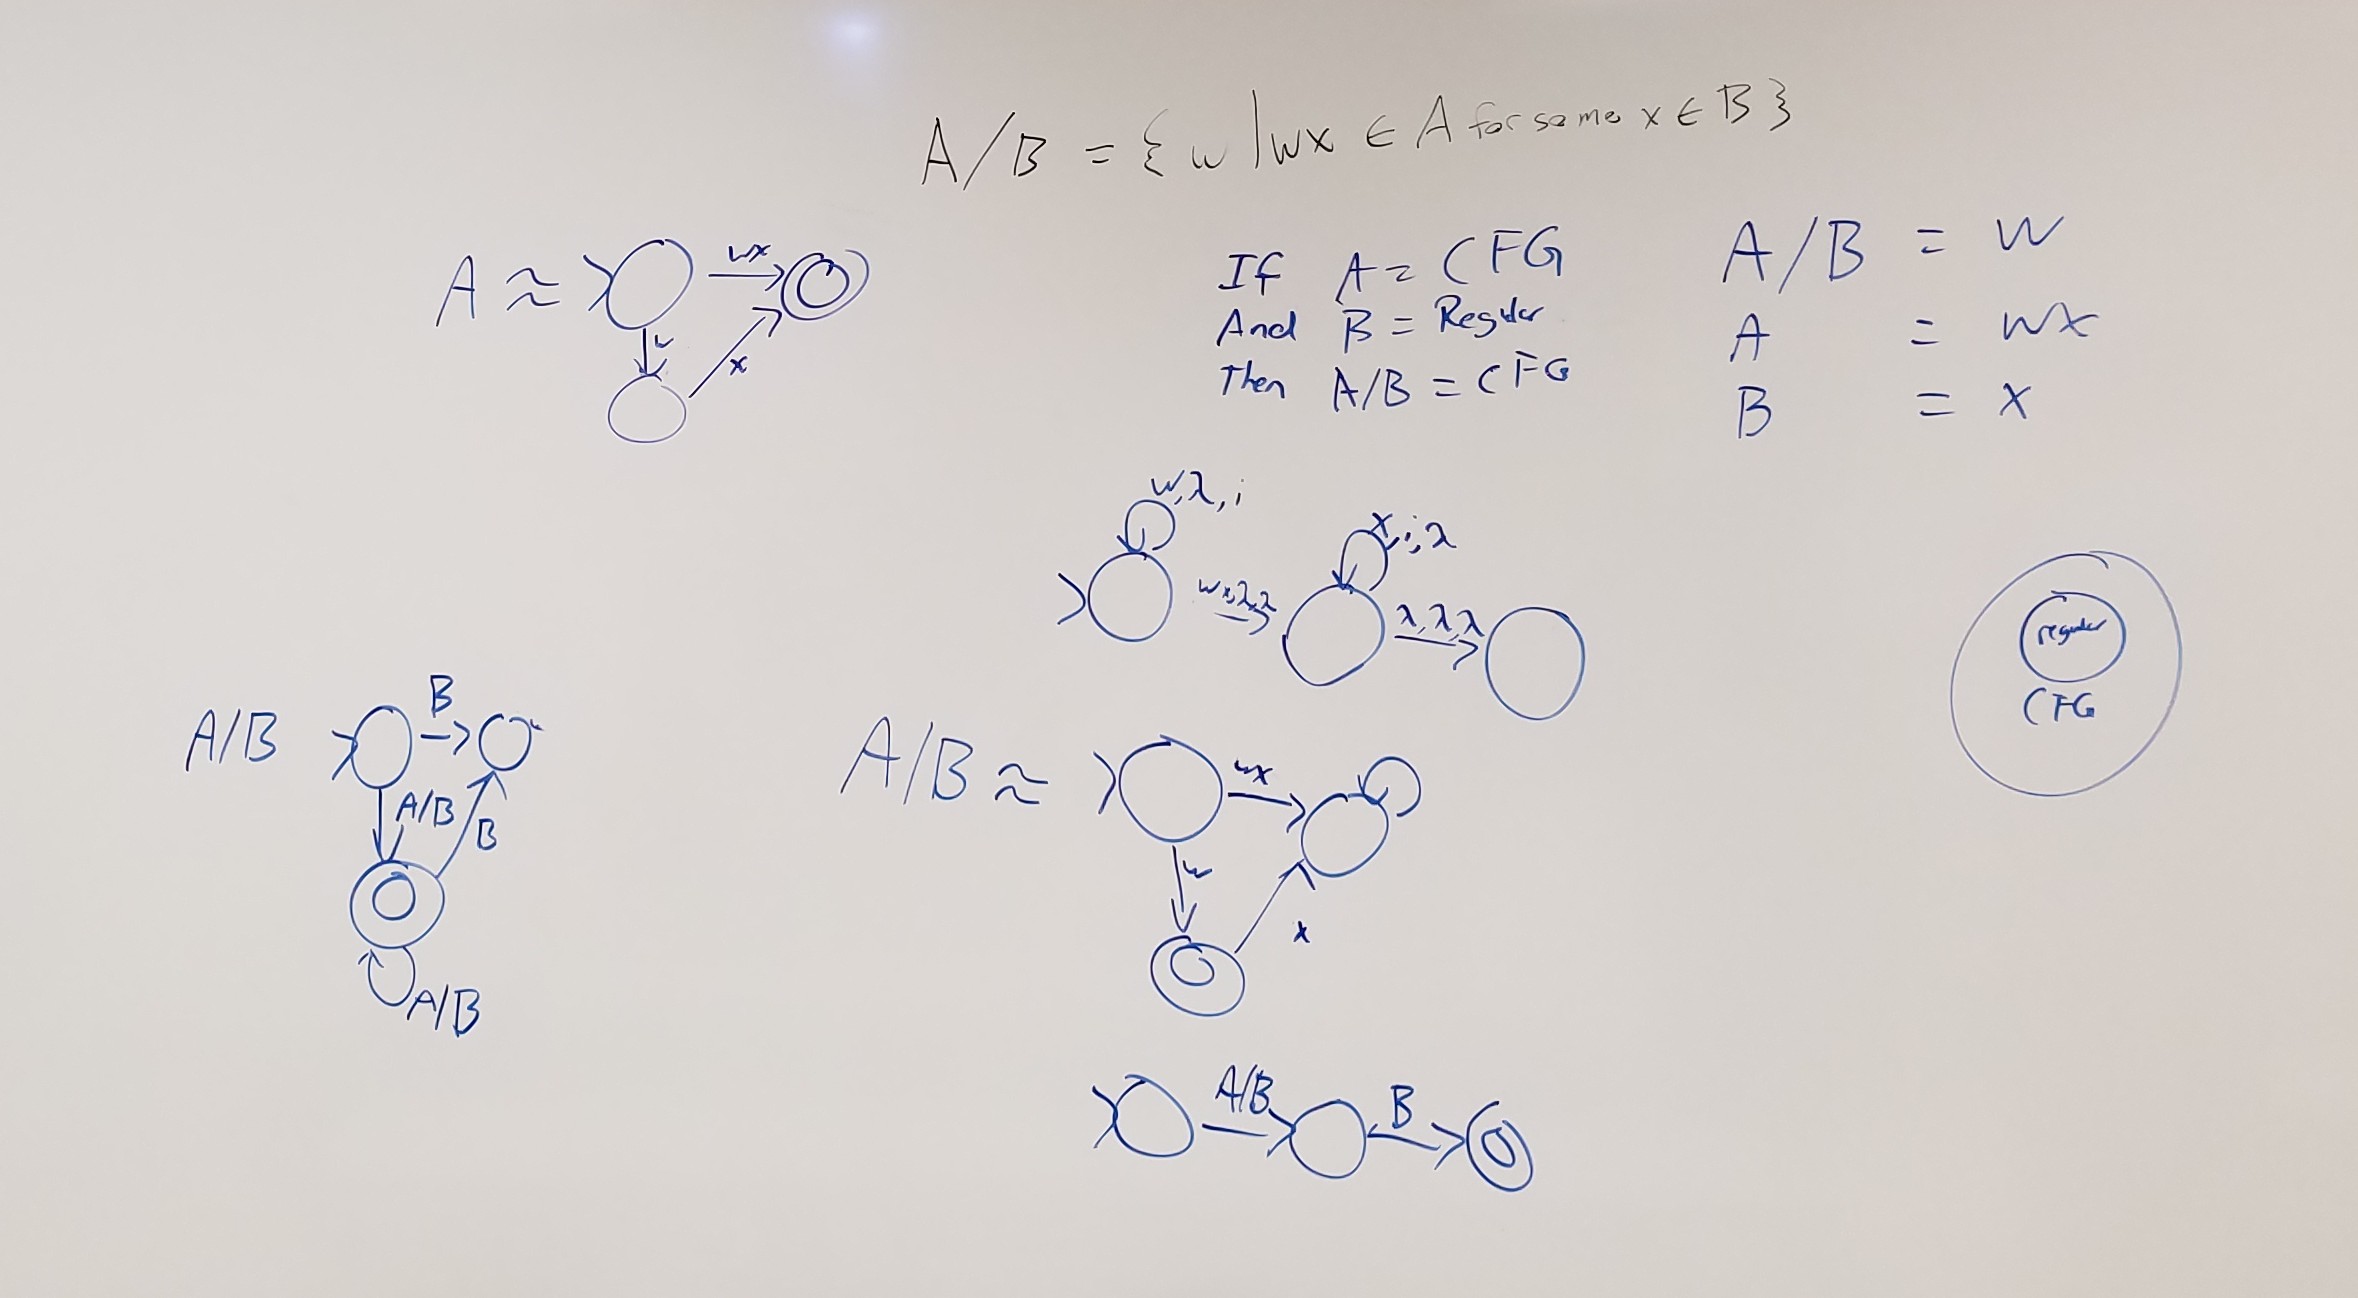 A/B = { w | wx ∈ A for some x ∈ B }
A ≈
wx
w
x
If A = CFG
And B = Regular
Then A/B = CFG
A/B = w
A = wx
B = x
w,λ,i
x,i,λ
wx,λ,λ
λ,λ,λ
regular
CFG
A/B
B
A/B
B
A/B
A/B ≈
wx
w
x
A/B
B